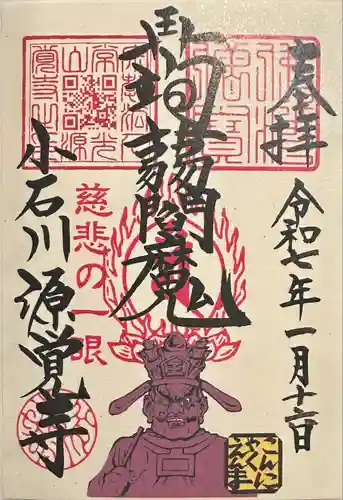 奉拝
佛法僧寶
令和七年一月十六日
蒟蒻閻魔
慈悲の一眼
小石川 源覚寺
こんに
ゃく
えんま